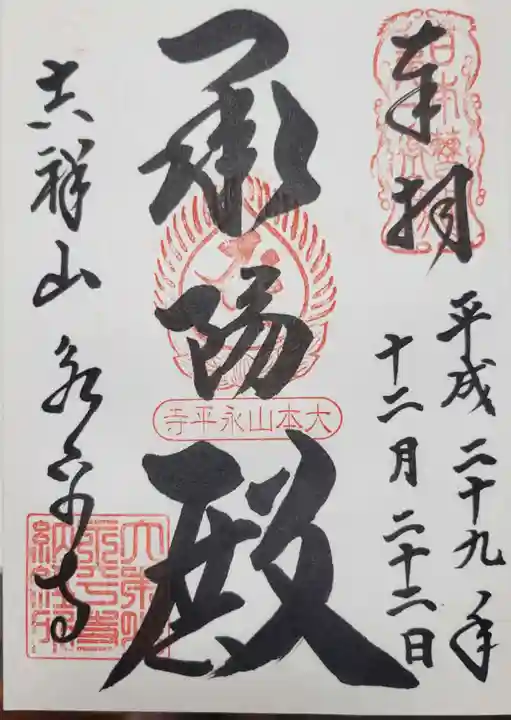 奉拝
平成二十九年
十二月二十二日
承陽殿
大本山永平寺
吉祥山永平寺